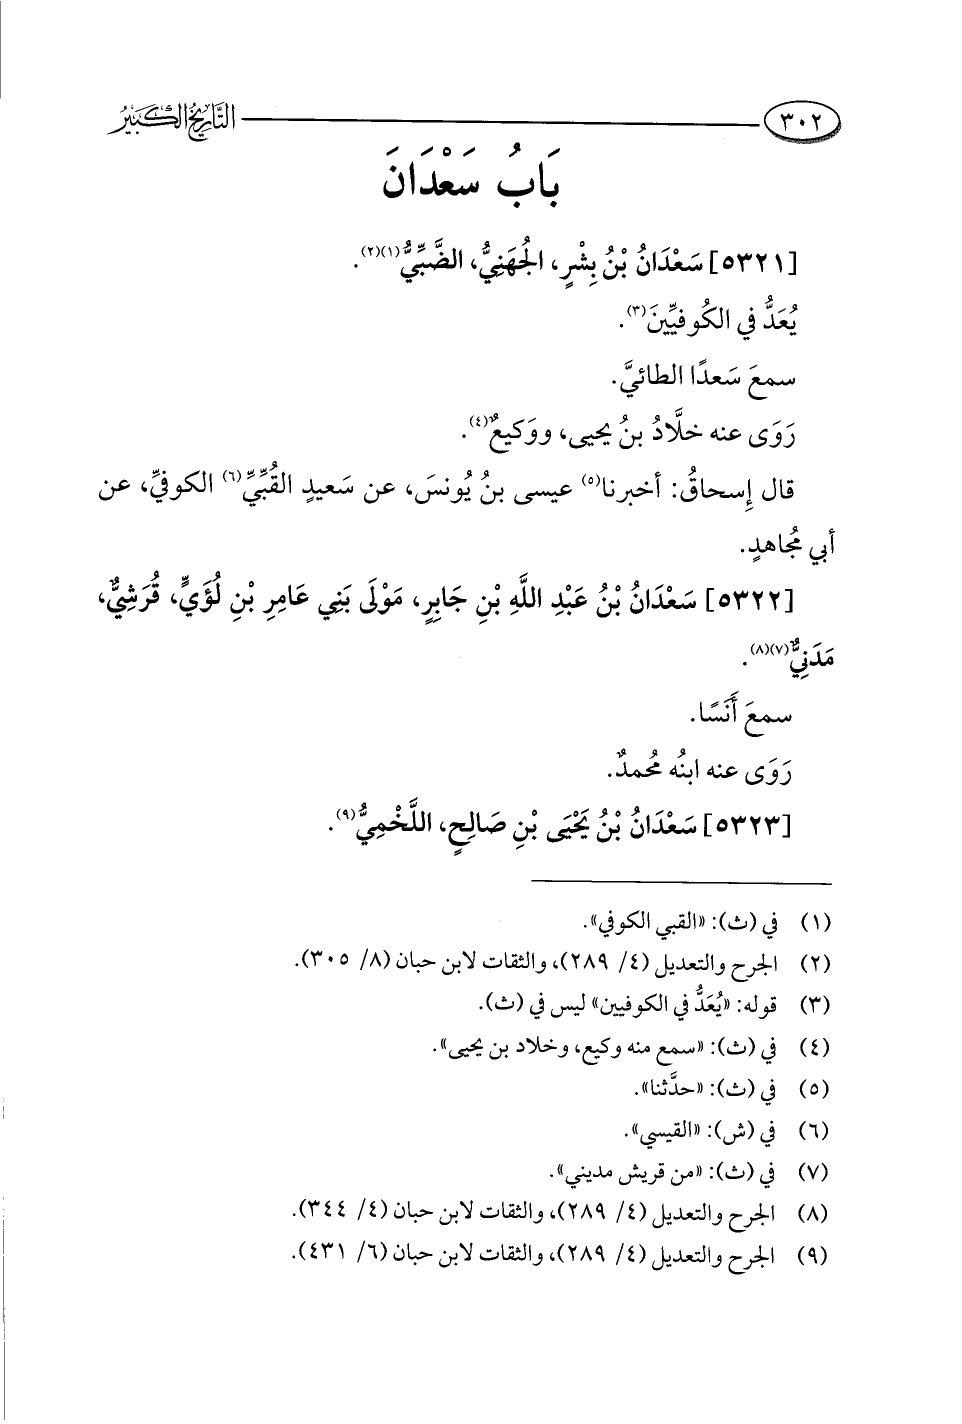 ٣٠٢ التَّارِيخُ الكَبِيرُ
بَابُ سَعْدَانَ
[٥٣٢١] سَعْدَانُ بْنُ بِشْرٍ، الجُهَنِيُّ، الضَّبِّيُّ(١)(٢).
يُعَدُّ في الكُوفيِّينَ(٣).
سمعَ سَعدًا الطائيَّ.
رَوَى عنه خلَّادُ بنُ يحيى، ووَكيعٌ(٤).
قال إِسحاقُ: أخبرنا(٥) عيسى بنُ يُونسَ، عن سَعيدٍ القُبِّيِّ(٦) الكوفيِّ، عن
أبي مُجاهدٍ.
[٥٣٢٢] سَعْدَانُ بْنُ عَبْدِ اللَّهِ بْنِ جَابِرٍ، مَوْلَى بَنِي عَامِرِ بْنِ لُؤَيٍّ، قُرَشِيٌّ،
مَدَنِيٌّ(٧)(٨).
سمعَ أَنَسًا.
رَوَى عنه ابنُه مُحمدٌ.
[٥٣٢٣] سَعْدَانُ بْنُ يَحْيَى بْنِ صَالِحٍ، اللَّخْمِيُّ(٩).
(١) في (ث): «القبي الكوفي».
(٢) الجرح والتعديل (٤/ ٢٨٩)، والثقات لابن حبان (٨/ ٣٠٥).
(٣) قوله: «يُعَدُّ في الكوفيين» ليس في (ث).
(٤) في (ث): «سمع منه وكيع، وخلاد بن يحيى».
(٥) في (ث): «حدَّثنا».
(٦) في (ش): «القيسي».
(٧) في (ث): «من قريش مديني».
(٨) الجرح والتعديل (٤/ ٢٨٩)، والثقات لابن حبان (٤/ ٣٤٤).
(٩) الجرح والتعديل (٤/ ٢٨٩)، والثقات لابن حبان (٦/ ٤٣١).